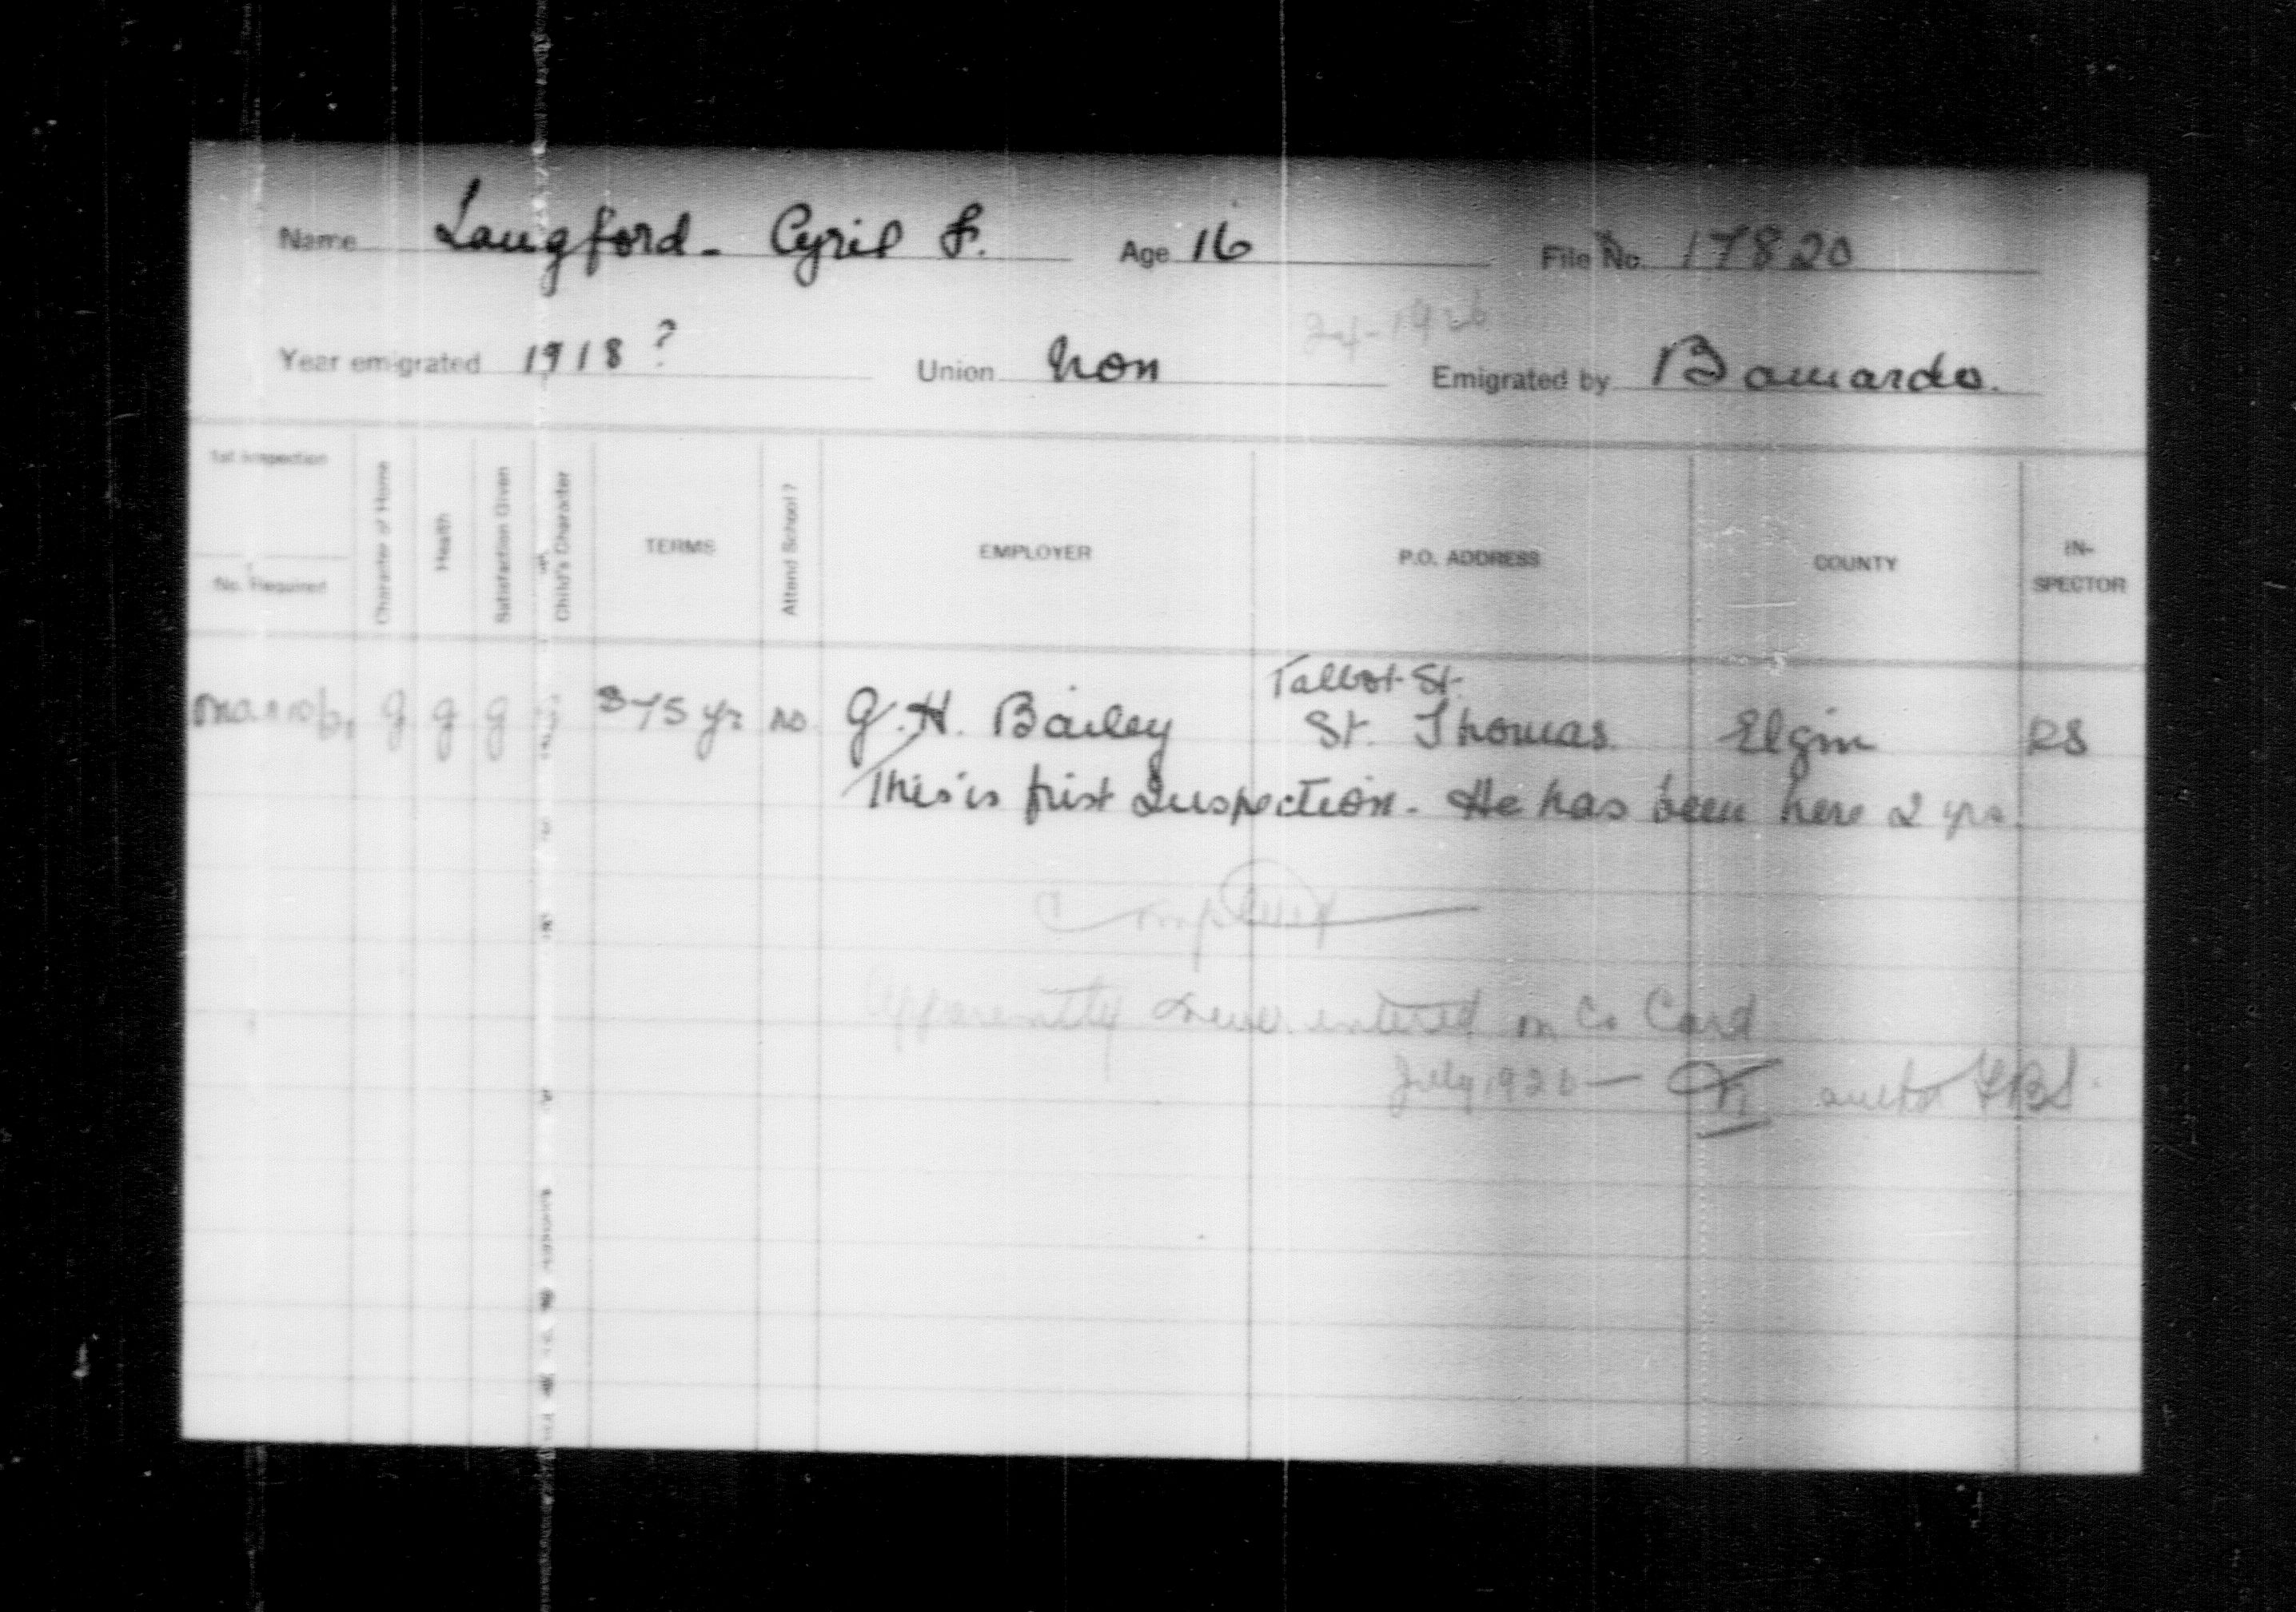 Name Langford - Cyril F. Age 16 File No. 17820
Year emigrated 1918? Union Non Emigrated by Barnardo.
1st Inspection
No. Required
Character of Home
Health
Satisfaction Given
Child's Character
TERMS
Attend School?
EMPLOYER
P.O. ADDRESS
COUNTY
IN-
SPECTOR
Talbot St.
g g g 75 yr no G. H. Bailey St. Thomas Elgin RS
This is first Inspection. He has been here 2 yrs.
Completed
Apparently entered on Co Card
July 192